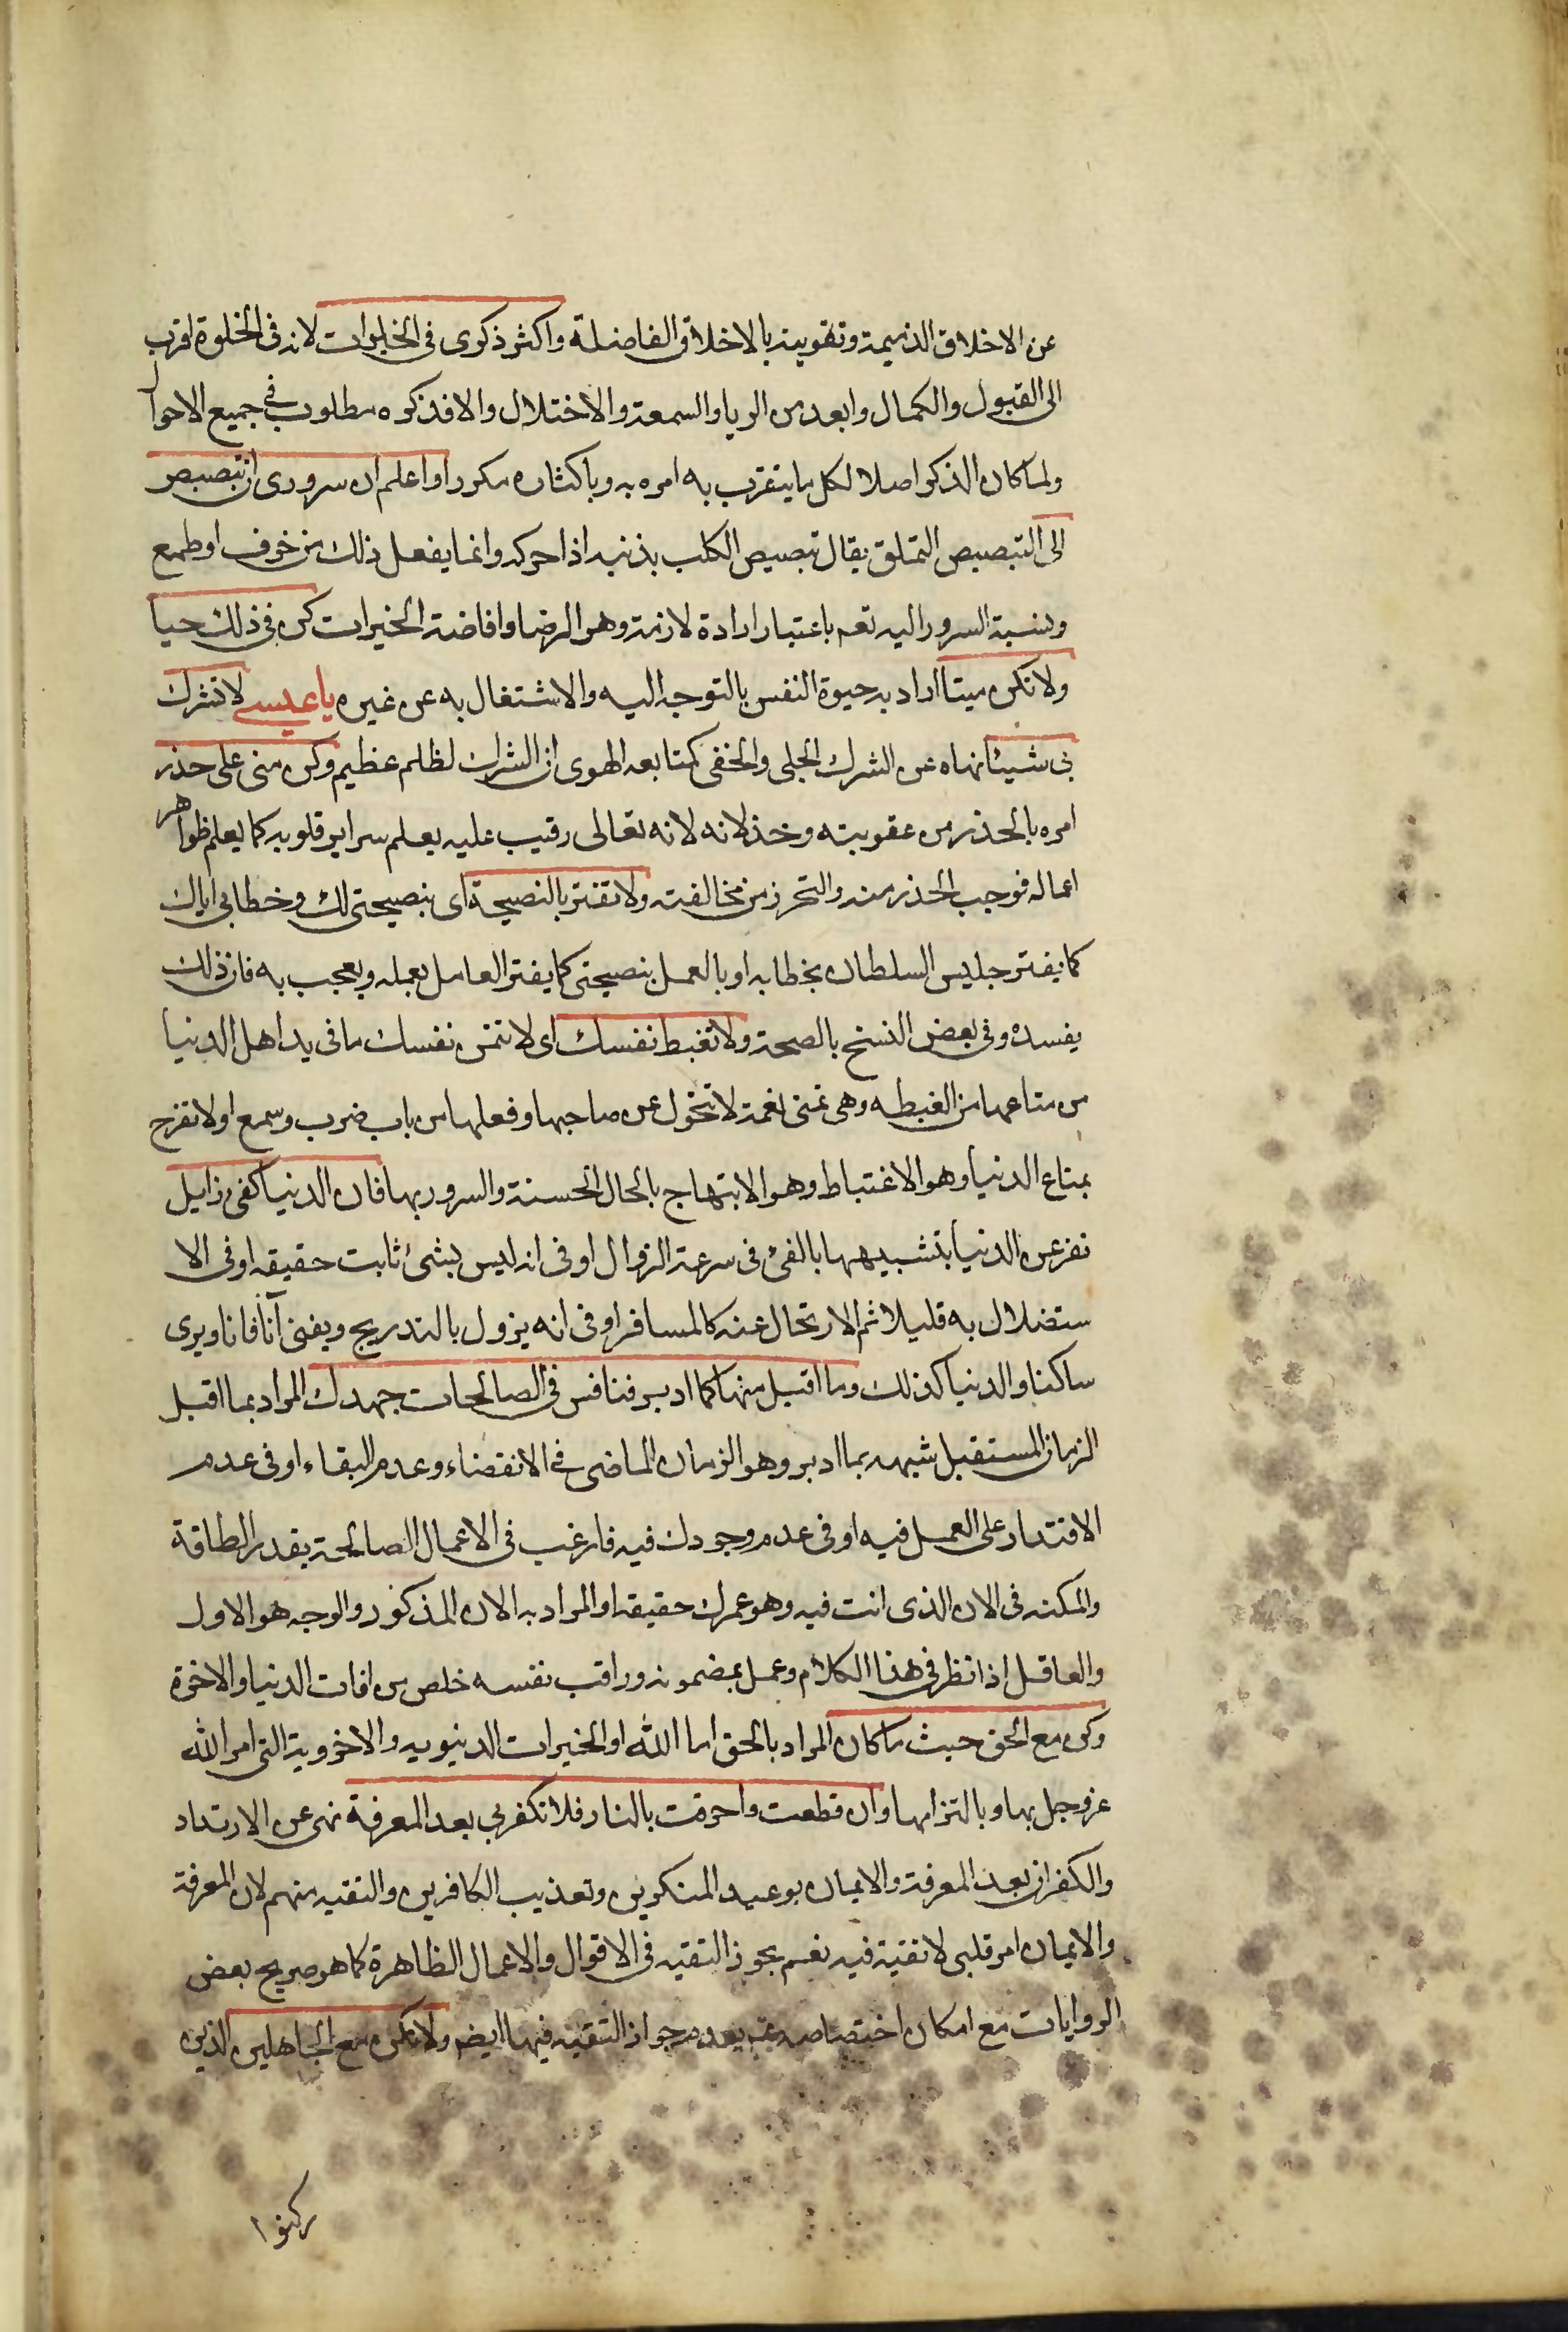 عن الاخلاق الذميمة وتقويته بالاخلاق الفاضلة واكثر ذكرى فى الخلوات لانه فى الخلوة اقرب
الى القبول والكمال وابعد من الريا والسمعة والاختلال والا فذكره مطلوب فى جميع الاحوال
ولما كان الذكر اصلا لكل ما يتقرب به امره به وباكثاره مكررا واعلم ان سرورى ان تبصبص
الى التبصبص التملق يقال تبصبص الكلب بذنبه اذا حركه وانما يفعل ذلك من خوف او طمع
ونسبة السرور اليه تعم باعتبار ارادة لازمة وهو الرضا وافاضة الخيرات كن فى ذلك حيا
ولا تكن ميتا اراد به حيوة النفس بالتوجه اليه والاشتغال به عن غيره يا عيسى لا تشرك
بى شيئا نهاه عن الشرك الجلى والخفى كمتابعه الهوى ان الشرك لظلم عظيم وكن منى على حذر
امره بالحذر من عقوبته وخذلانه لانه تعالى رقيب عليه يعلم سراير قلوبه كما يعلم ظواهر
اعماله فوجب الحذر منه والتحرز من مخالفته ولا تغتر بالنصيحة اى بنصيحتى لك وخطابى اياك
كما يغتر جليس السلطان بخطابه او بالعمل بنصيحتى كما يغتر العامل بعمله ويعجب به فان ذلك
يفسده وفى بعض النسخ بالصحة ولا تغبط نفسك اى لا تتمن نفسك ما فى يد اهل الدنيا
من متاعها من الغبطه وهى تمنى نعمة لا تتحول عن صاحبها وفعلها من باب ضرب وسمع او لا تفرح
بمتاع الدنيا وهو الاغتباط وهو الابتهاج بالحال الحسنة والسرور بها فان الدنيا كفى زايل
نفر عن الدنيا بتشبيهها بالفئ فى سرعة الزوال او فى انه ليس بشئ ثابت حقيقه او فى الا
ستضلال به قليلا ثم الارتحال عنه كالمسافر او فى انه يزول بالتدريج ويفنى آنا فانا ويرى
ساكنا والدنيا كذلك وما اقبل منها كما ادبر فنافس فى الصالحات جهدك المراد بما اقبل
الزمان المستقبل شبهه بما ادبر وهو الزمان الماضى فى الانقضاء وعدم البقاء او فى عدم
الاقتدار على العمل فيه او فى عدم وجودك فيه فارغب فى الاعمال الصالحة بقدر الطاقة
والمكنه فى الان الذى انت فيه وهو عمرك حقيقه او المراد به الان المذكور والوجه هو الاول
والعاقل اذا نظر فى هذا الكلام وعمل بمضمونه وراقب نفسه خلص من افات الدنيا والاخرة
وكن مع الحق حيث ما كان المراد بالحق اما الله او الخيرات الدنيويه والاخروية التى امر الله
عز وجل بها وبالتزامها وان قطعت واحرقت بالنار فلا تكفر بى بعد المعرفة نهى عن الارتداد
والكفران بعد المعرفة والايمان بوعيد المنكرين وتعذيب الكافرين والتقيه منهم لان المعرفة
والايمان امر قلبى لا تقية فيه نعم يجوز التقيه فى الاقوال والاعمال الظاهرة كما هو صريح بعض
الروايات مع امكان اختصاصه بعدم جواز التقيه فيها ايضا ولا تكن مع الجاهلين الذين
ركنوا